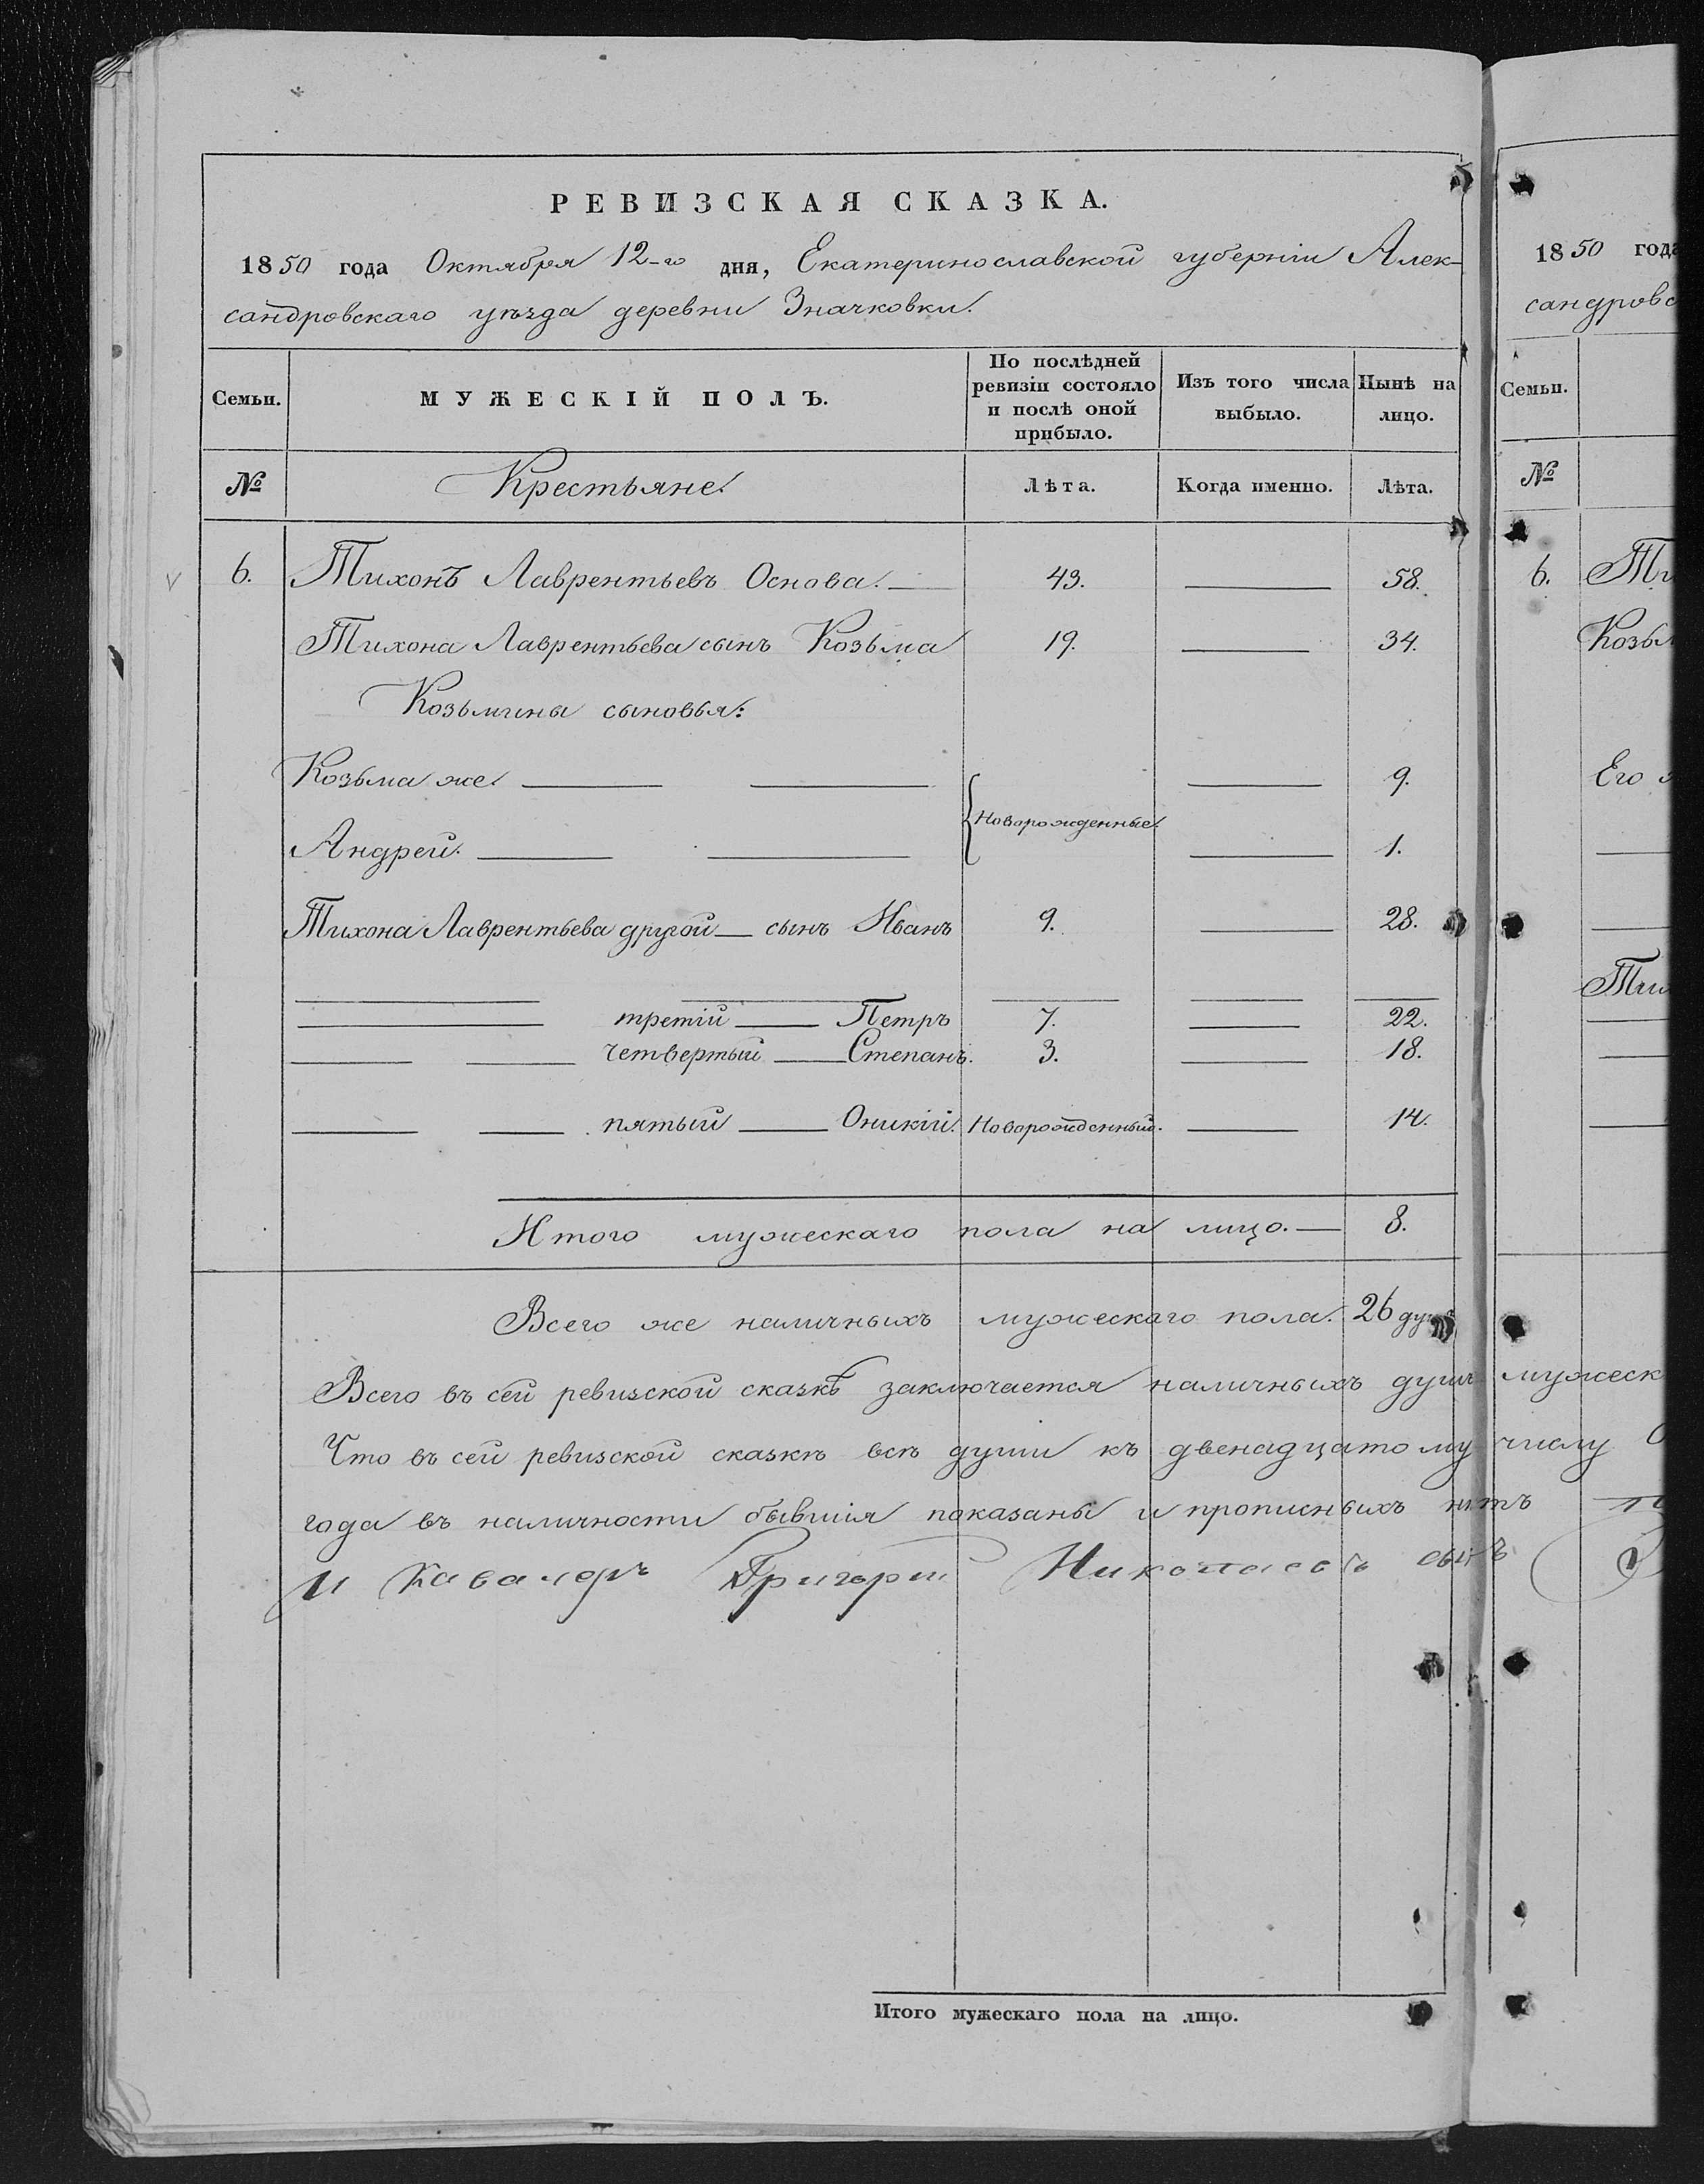 РЕВИЗСКАЯ СКАЗКА.
1850 года Октября 12-го дня, Екатеринославской губерніи Алек-
сандровскаго уѣзда деревни Значковки.
Семьи. МУЖЕСКІЙ ПОЛЪ. По послѣдней ревизіи состояло и послѣ оной прибыло. Изъ того числа выбыло. Нынѣ на лицо.
№ Крестьяне. Лѣта. Когда именно. Лѣта.
6. Тихонъ Лаврентьевъ Основа. 43. 58.
Тихона Лаврентьева сынъ Козьма 19. 34.
Козьмины сыновья:
Козьма же. 9.
Новорожденные.
Андрей. 1.
Тихона Лаврентьева другой сынъ Иванъ 9. 28.
третій Петръ 7. 22.
четвертый Степанъ. 3. 18.
пятый Оникій. Новорожденный. 14.
Итого мужескаго пола на лицо. 8.
Всего же наличныхъ мужескаго пола. 26
Всего въ сей ревизской сказкѣ заключается наличныхъ душъ мужеск
Что въ сей ревизской сказкѣ всѣ души къ двенадцатому числу
года въ наличности бывшія показаны и прописныхъ нѣтъ
и Кавалеръ Григорій Николаевъ сынъ
Итого мужескаго пола на лицо.
1850 года
сандровс
Семьи.
№
6. Ти
Козьм
Его
Тих